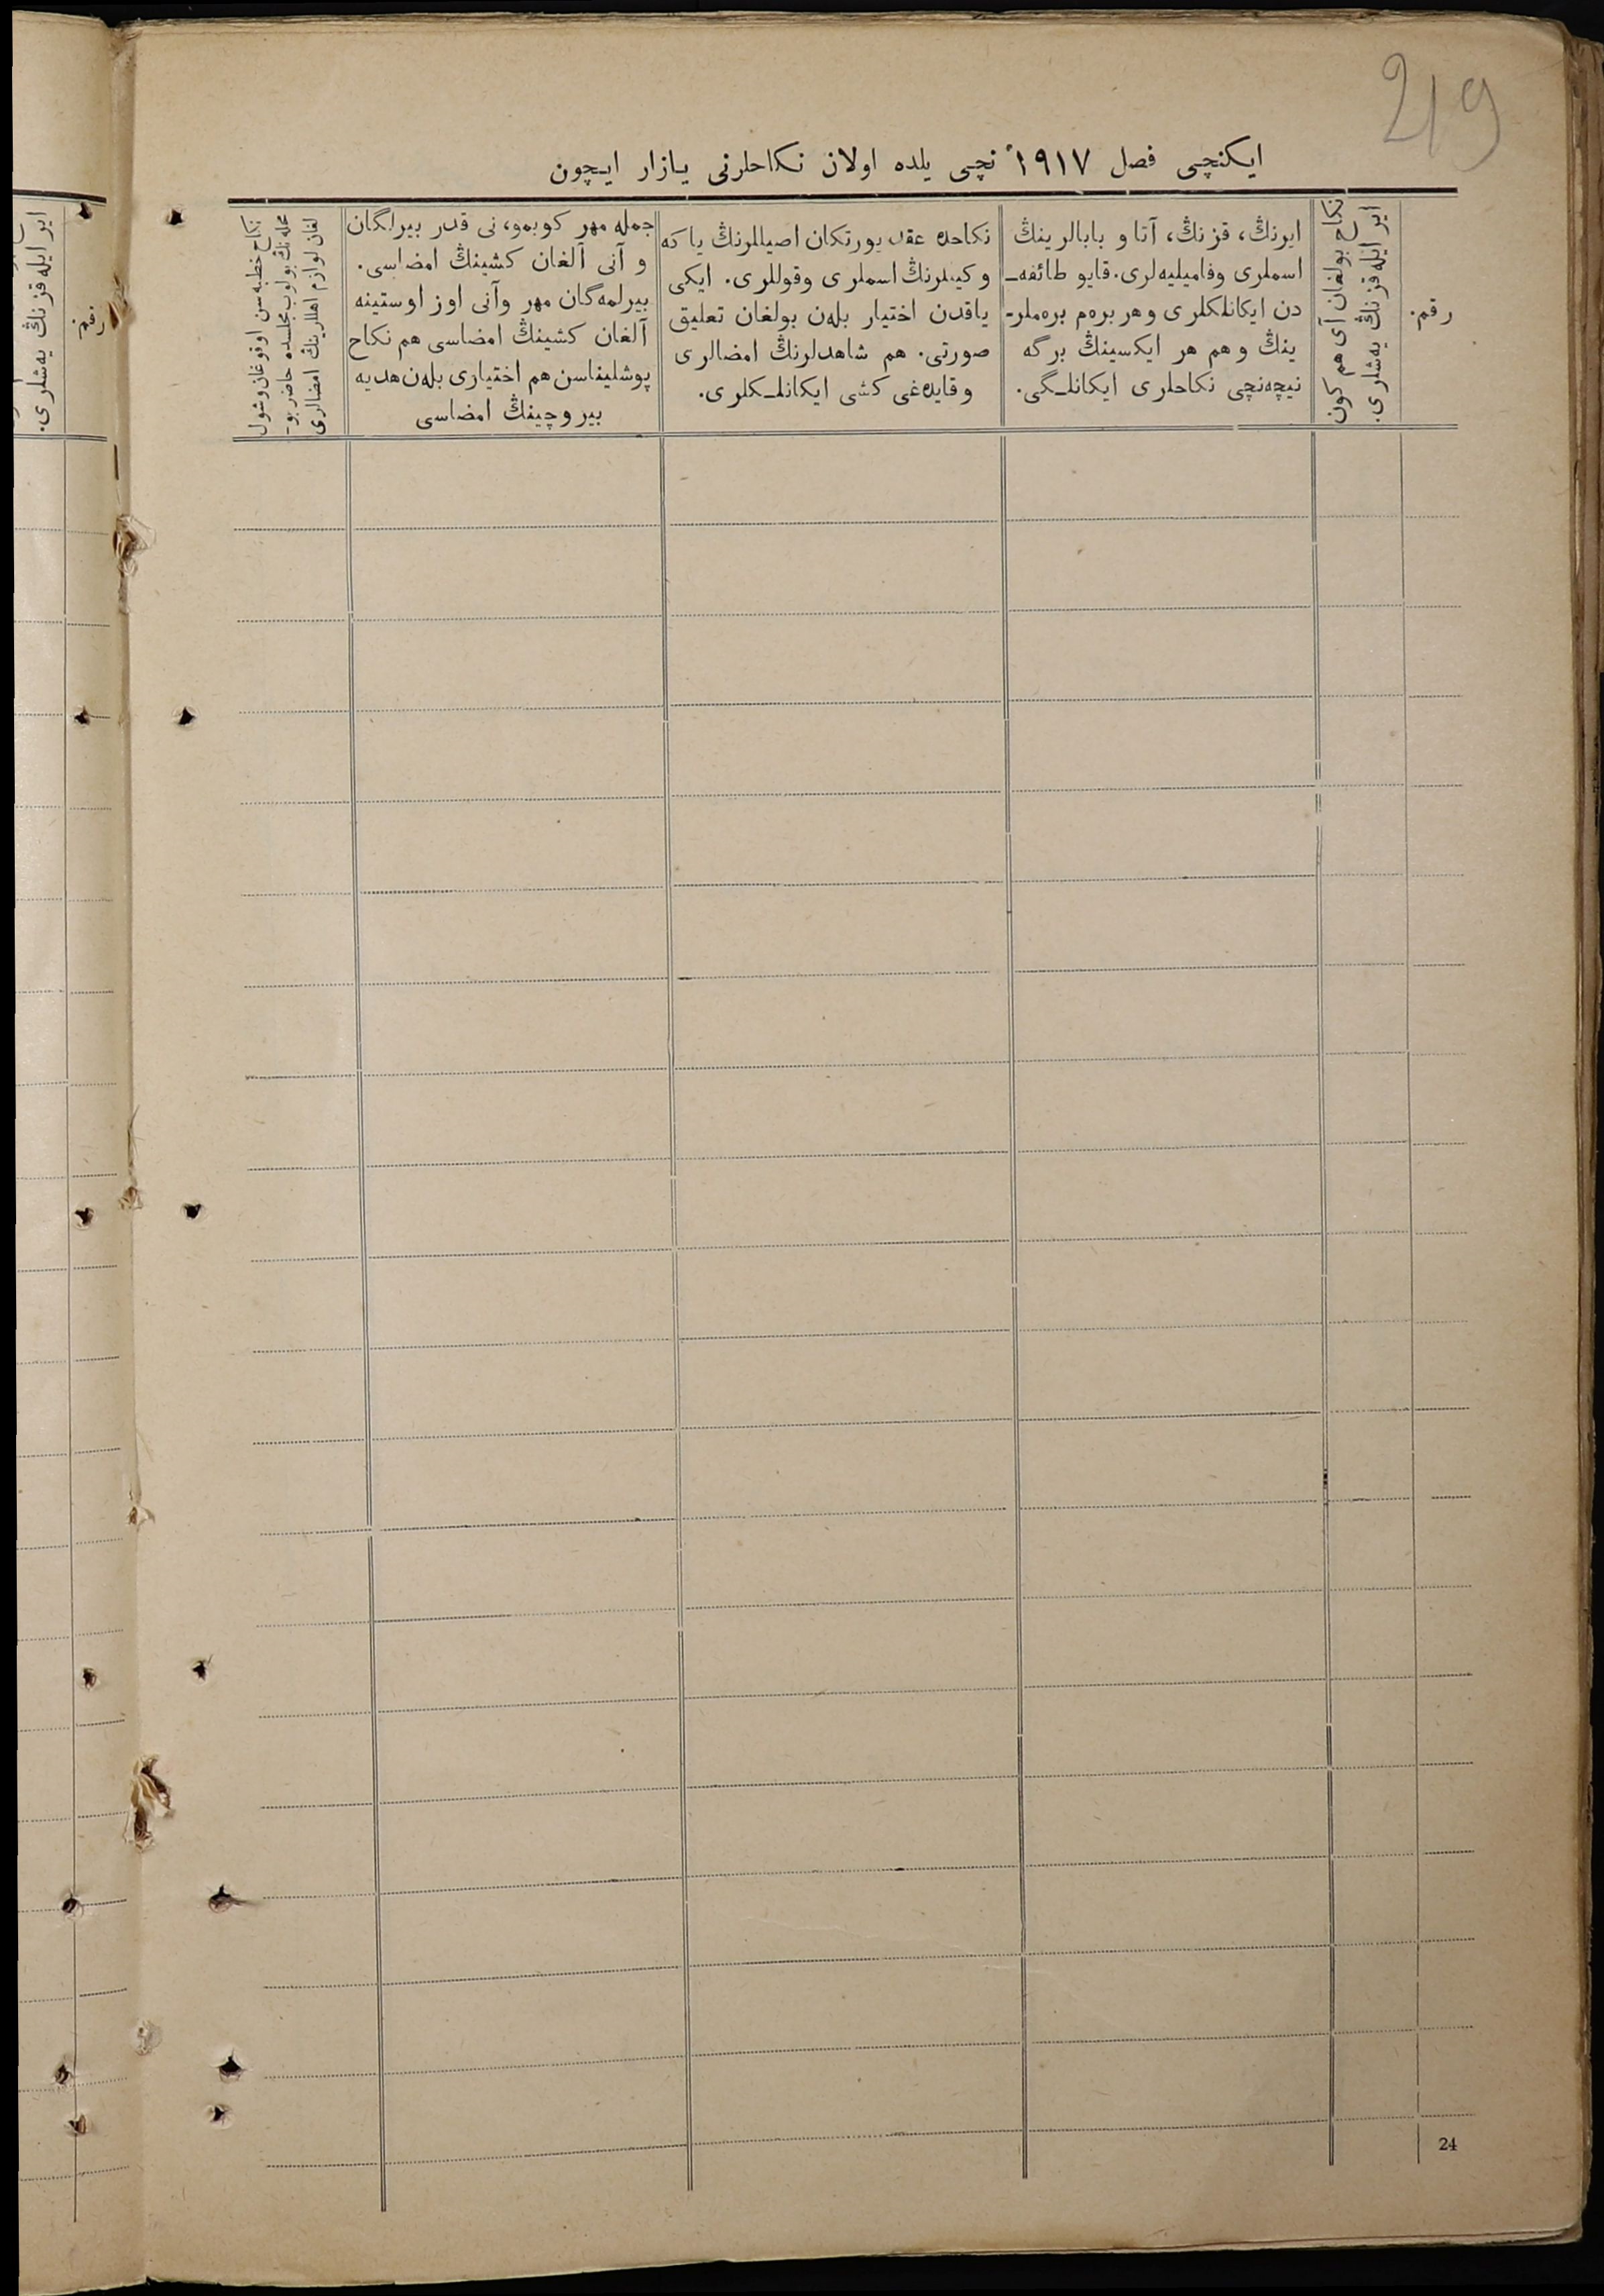 219
ایکنچی فصل ١٩١٧ نچی یلده اولان نکاحلرنی یازار ایچون
رقم.
نکاح بولغان آی هم کون
ایر ایله قزنڭ یه‌شلری.
ایرنڭ، قزنڭ، آتا و بابالرینڭ
اسملری وفامیلیه‌لری. قایو طائفه‌ـ
دن ایکانلکلری و هر بره‌م بره‌ملرـ
ینڭ و هم هر ایکسینڭ برگه
نیچه‌نچی نکاحلری ایکانلـگی.
نکاحده عقد یورتکان اصیللرنڭ یا که
وکیللرنڭ اسملری وقوللری. ایکی
یاقدن اختیار بله‌ن بولغان تعلیق
صورتی. هم شاهدلرنڭ امضالری
وقایده‌غی کشی ایکانلـکلری.
جمله مهر کوبمو، نی قدر بیرلگان
و آنی آلغان کشینڭ امضاسی.
بیرلمه‌گان مهر وآنی اوز اوستینه
آلغان کشینڭ امضاسی هم نکاح
پوشلیناسن هم اختیاری بله‌ن هدیه
بیروچینڭ امضاسی
نکاح خطبه‌سن اوقوغان وشول
محله‌نڭ بولوب مجلسده حاضر بوـ
لغان لوازم اهللرینڭ امضالری
رقم.
ایر ایله قزنڭ یه‌شلری.
24